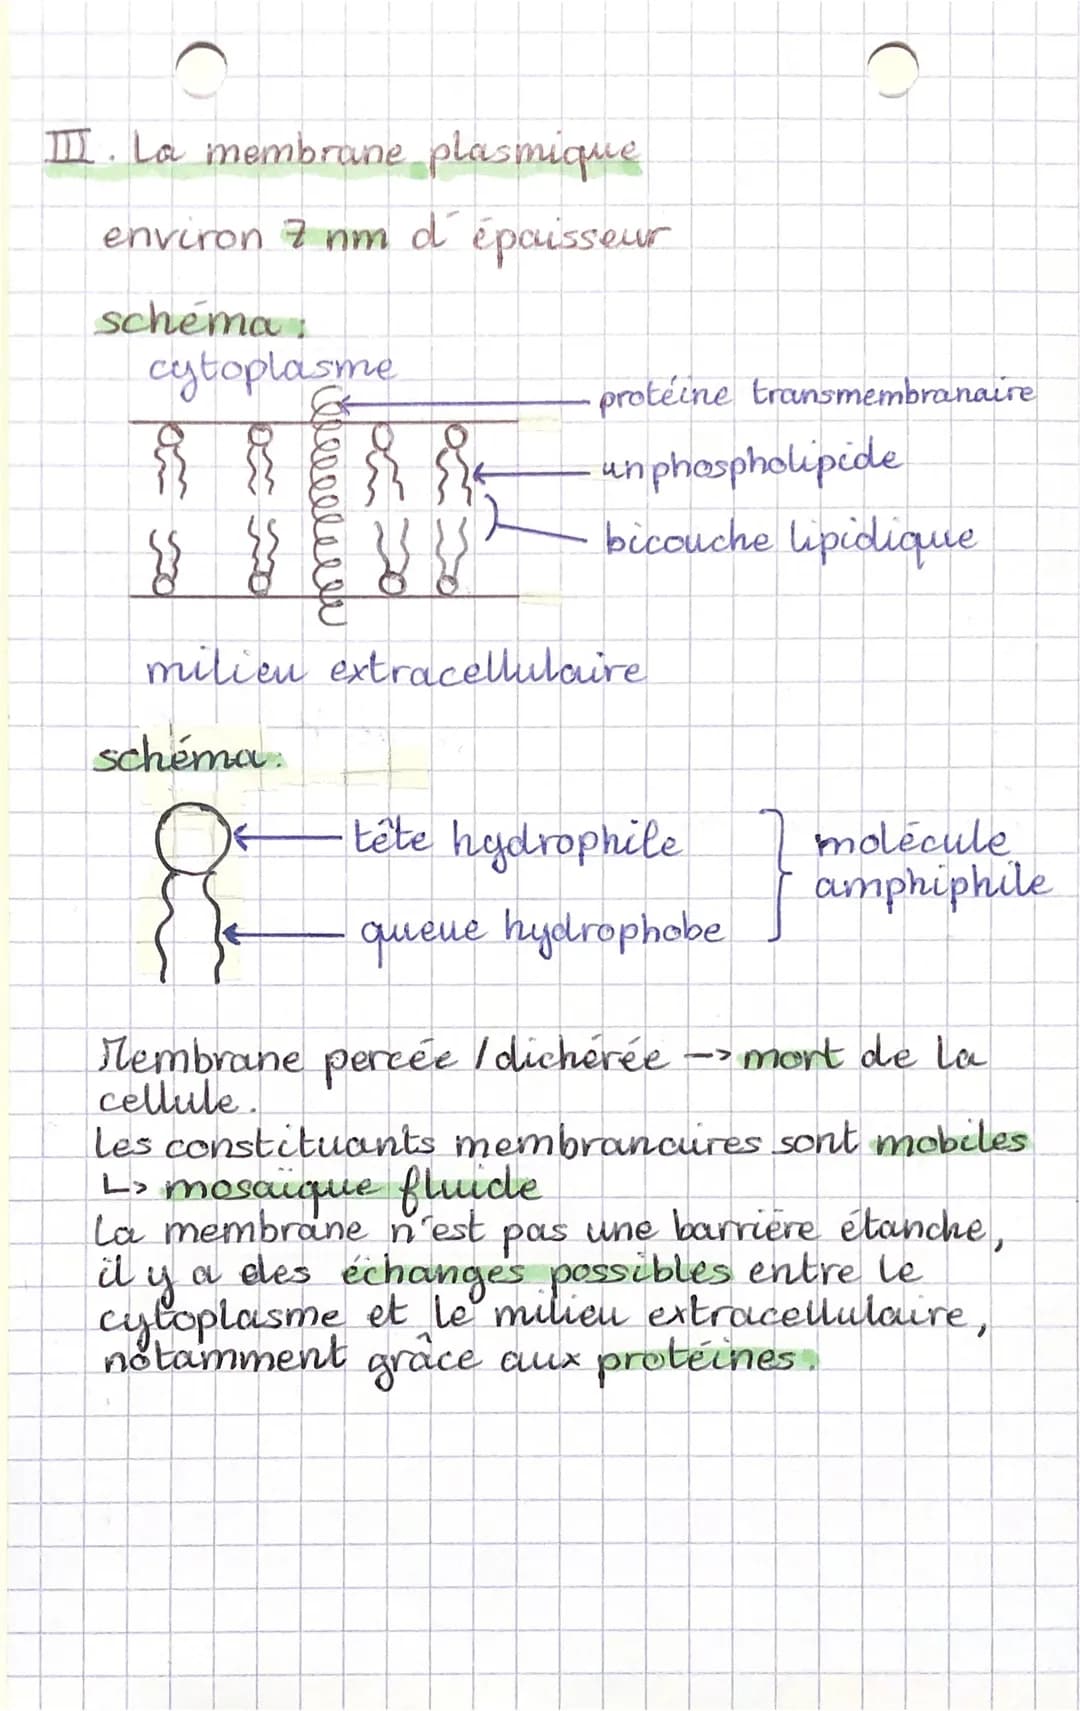 III. La membrane plasmique
environ 7 nm d'épaisseur
schéma :
cytoplasme
protéine transmembranaire
un phospholipide
bicouche lipidique
milieu extracellulaire
schéma :
tête hydrophile
queue hydrophobe
molécule
amphiphile
Membrane percée / dichérée -> mort de la
cellule.
Les constituants membranaires sont mobiles
↳ mosaïque fluide
La membrane n'est pas une barrière étanche,
il y a des échanges possibles entre le
cytoplasme et le milieu extracellulaire,
notamment grâce aux protéines.